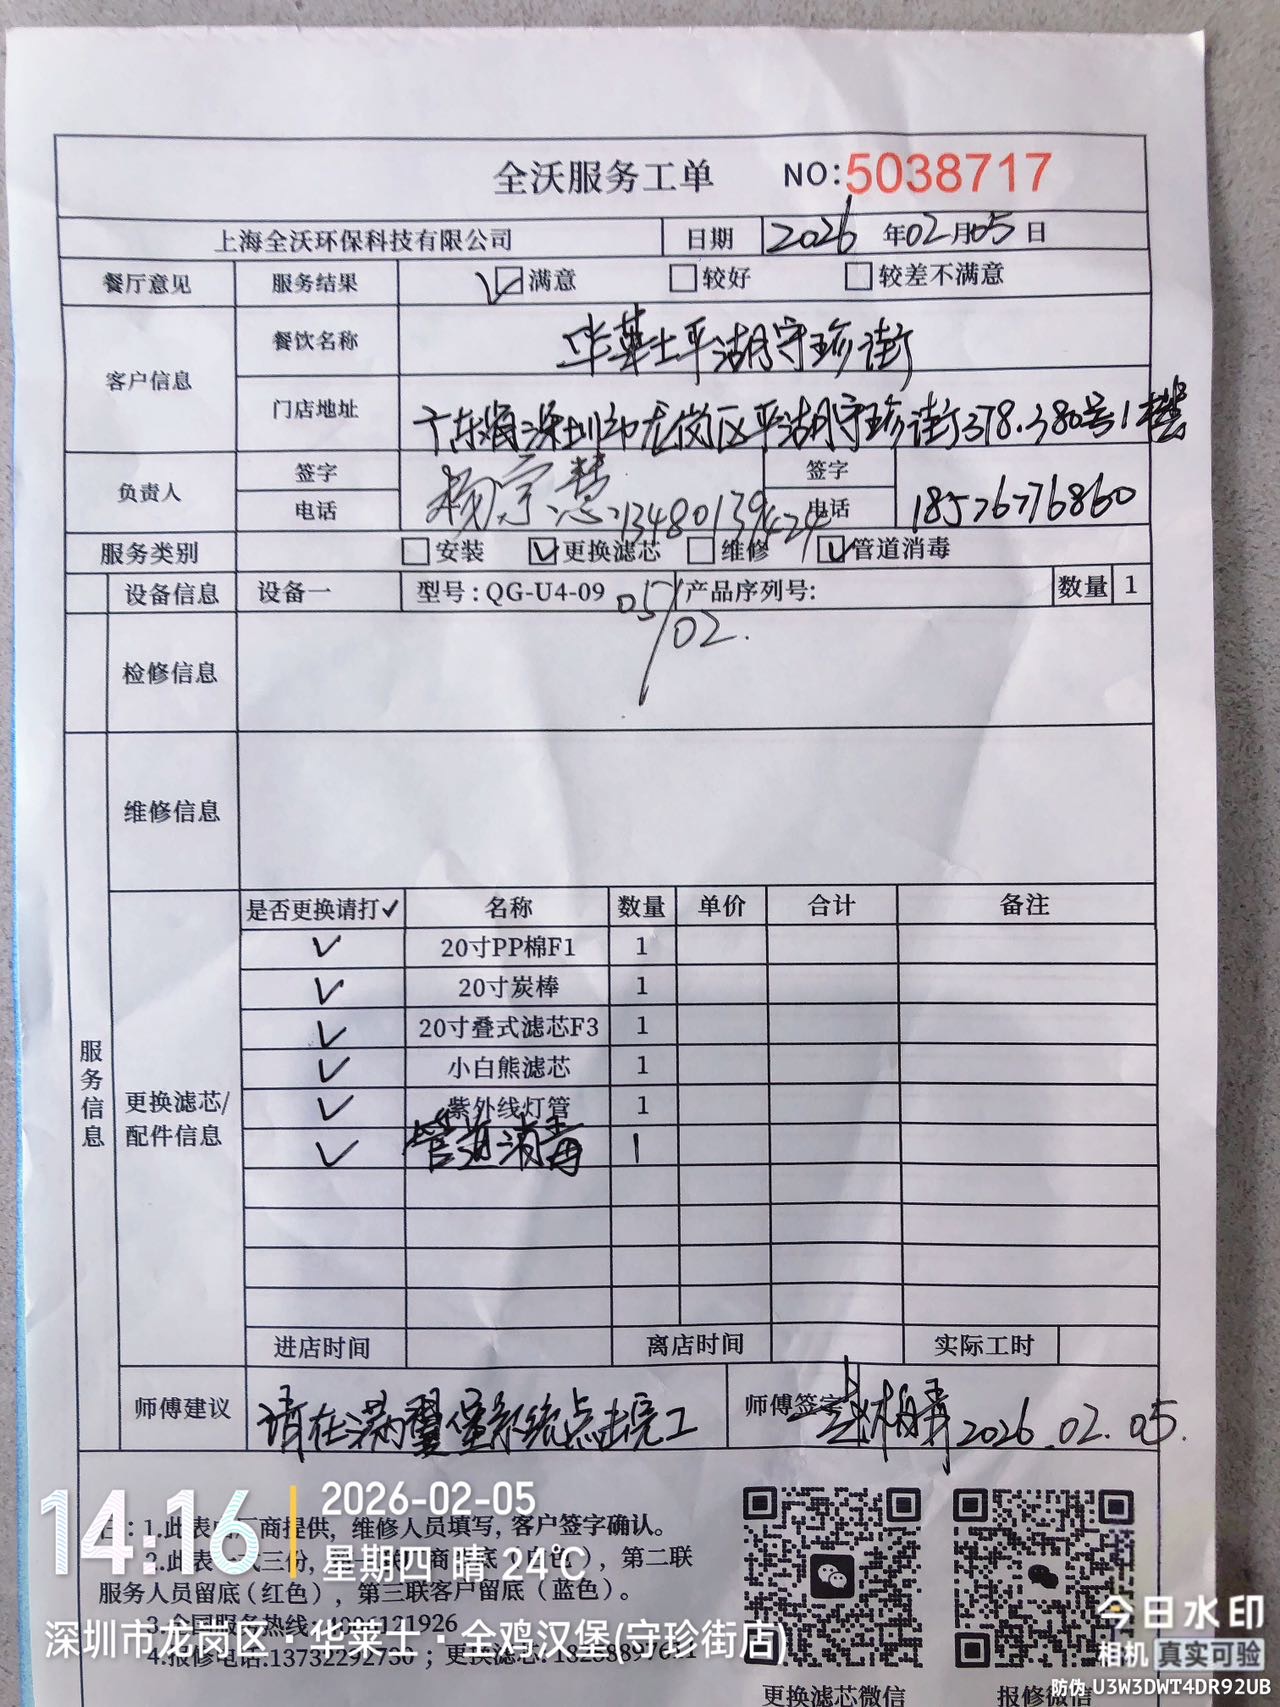 全沃服务工单 NO:5038717
上海全沃环保科技有限公司 日期 2026 年02月05日
餐厅意见 服务结果 满意 较好 较差不满意
客户信息 餐饮名称 华莱士平湖守珍街
门店地址 广东省深圳市龙岗区平湖守珍街378.380号1楼
负责人 签字 杨宗慧 签字
电话 电话 18576776860
服务类别 安装 更换滤芯 维修 管道消毒
设备信息 设备一 型号:QG-U4-09 产品序列号: 数量 1
05/02.
检修信息
维修信息
服务信息
更换滤芯/配件信息
是否更换请打✓ 名称 数量 单价 合计 备注
✓ 20寸PP棉F1 1
✓ 20寸炭棒 1
✓ 20寸叠式滤芯F3 1
✓ 小白熊滤芯 1
✓ 紫外线灯管 1
✓ 管道消毒 1
进店时间 离店时间 实际工时
师傅建议 请在满翼堡系统点击完工 师傅签字 2026.02.05.
注:1.此表由厂商提供, 维修人员填写, 客户签字确认。
2.此表一式三份, 第一联厂商留底(白色), 第二联
服务人员留底(红色), 第三联客户留底(蓝色)。
3.全国服务热线:4006121926
4.报修电话:13732292730 ; 更换滤芯:
更换滤芯微信 报修微信
14:16
2026-02-05
星期四 晴 24℃
深圳市龙岗区·华莱士·全鸡汉堡(守珍街店)
今日水印
相机 真实可验
防伪 U3W3DWT4DR92UB